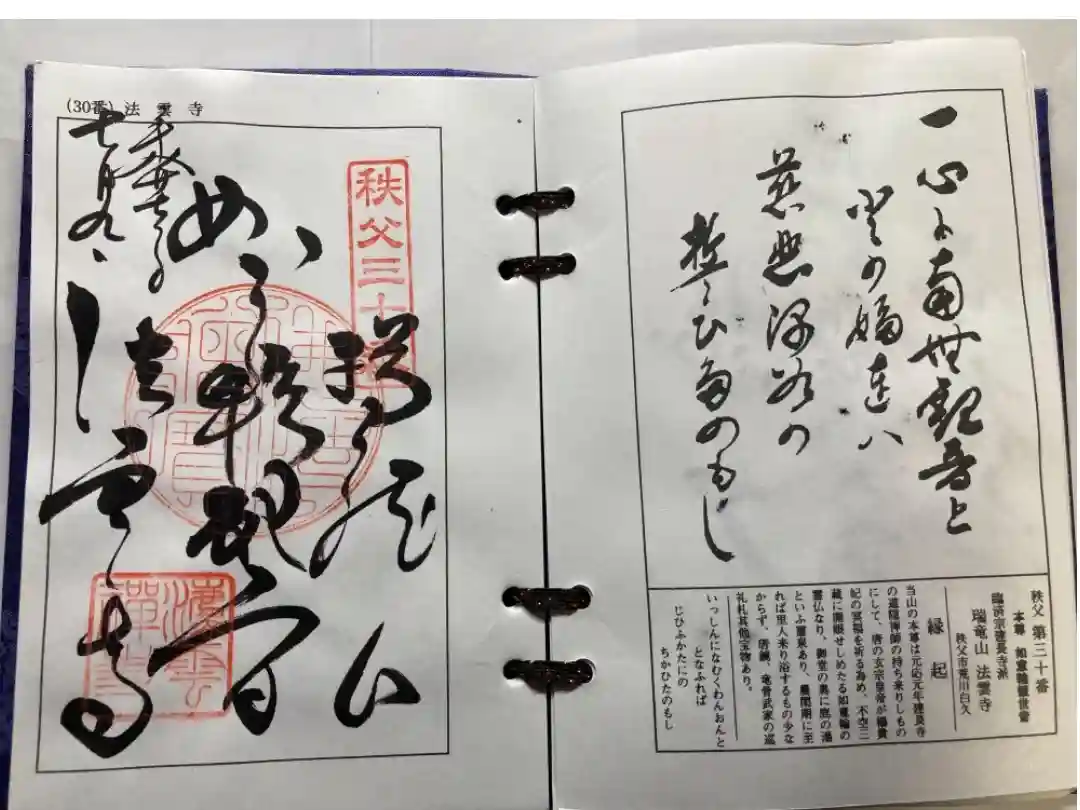 一心に南無観音と
登の婦連ハ
慈悲深谷の
誓ひ多のもし
秩父 第三十番
本尊 如意輪観世音
臨済宗建長寺派
瑞竜山 法雲寺
秩父市荒川白久
縁起
当山の本尊は元応元年建長寺
の道隠禅師の持ち来りしもの
にして、唐の玄宗皇帝が楊貴
妃の冥福を祈る為め、不空三
蔵に開眼せしめたる如意輪の
霊仏なり、御堂の奥に庭の湯
といふ霊泉あり、農閑期に至
れば里人来り浴するもの少な
からず、唐鏡、竜骨武家の巡
礼札其他宝物あり。
いっしんになむくわんおんと
となふれば
じひふかたにの
ちかひたのもし
(30番) 法雲寺
秩父三十
瑞龍山
如意輪観音
法雲寺
七月九日